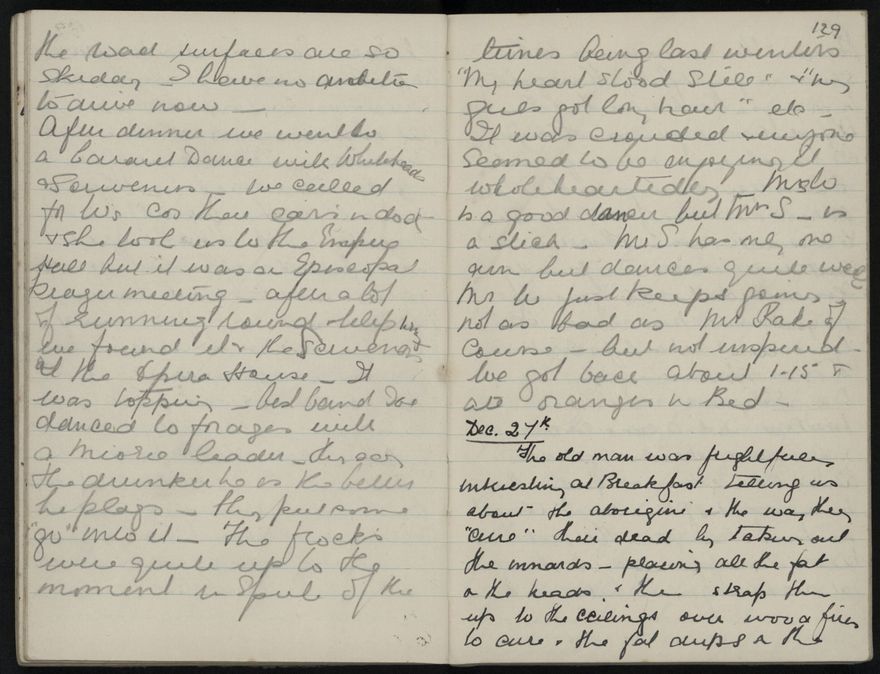 the road surfaces are so
I have no
to drive now —
After dinner we went to
a Cabaret Dance with Whiteheads
& Scriveners — We called
for Ws Cos their car is in dock
& She took us to the Empire
Hall but it was an Episcopal
Prayer meeting — after a lot
of running round & telephoning
we found it & the Scriveners
at the Opera House — It
was topping — best band I've
danced to for ages with
a leader — they say
the drunker he is the better
he plays — they put some
"go" into it — The frocks
were quite up to the
moment in Spite of the
129
tunes being last winters
"My heart stood Still" & "my
gals got long hair" etc —
It was crowded & everyone
Seemed to be enjoying it
wholeheartedly — Mrs W
is a good dancer but Mrs S — is
a stick — Mr S has only one
arm but dances quite well
Mr W just keeps going —
not as bad as Mr Rake of
Course — but not inspired —
We got back about 1-15 &
ate oranges in Bed —
Dec. 27th
The old man was frightfully
interesting at Breakfast telling us
about the aborigini & the way they
"cure" their dead by taking out
the innards — placing all the fat
on the heads & then strap them
up to the ceilings over wood fires
to cure & the fat drips on the